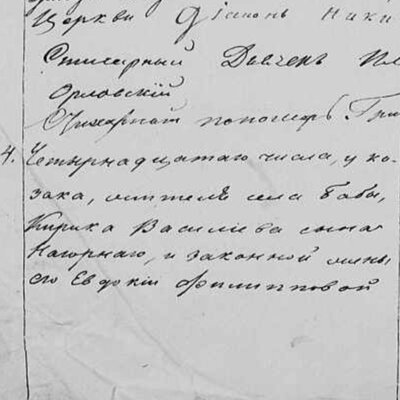 Церкви Діаконъ Ники
Стихарный Дьячекъ
Орловскій
Стихарный пономарь Гри
4. Четырнадцатаго числа, у ко-
зака, жителя села Бабы,
Кирика Василіева сына
Нагорнаго, и законной жены
его Евдокіи Филипповой